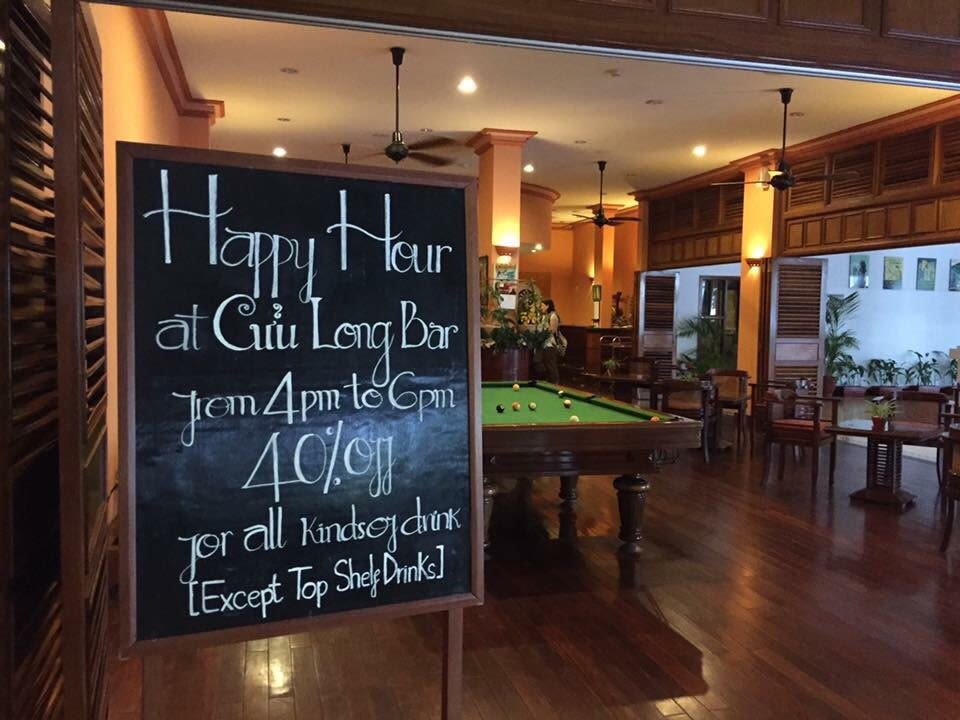 Happy Hour
at Cửu Long Bar
from 4pm to 6pm
40% off
for all kinds of drink
[Except Top Shelf Drinks]